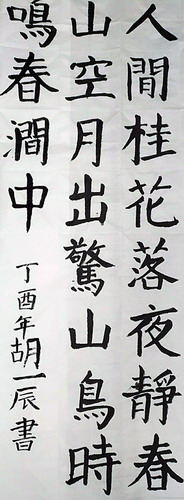 人間桂花落夜靜春
山空月出驚山鳥時
鳴春澗中
丁酉年胡一辰書